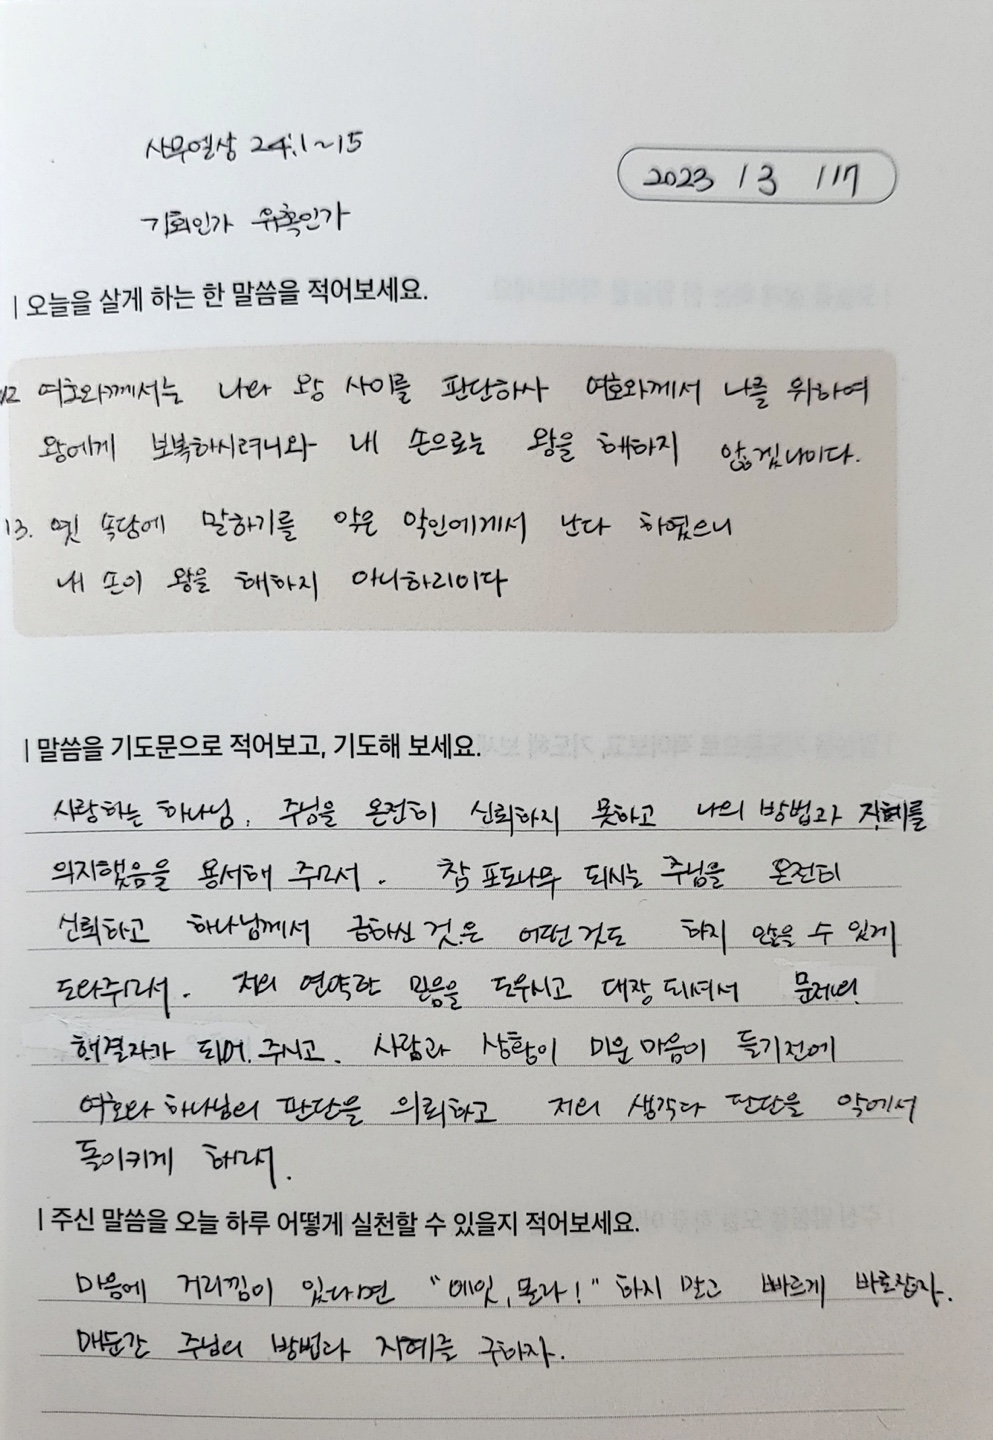 사무엘상 24:1~15
2023 / 3 / 17
기회인가 유혹인가
| 오늘을 살게 하는 한 말씀을 적어보세요.
12 여호와께서는 나와 왕 사이를 판단하사 여호와께서 나를 위하여
왕에게 보복하시려니와 내 손으로는 왕을 해하지 않겠나이다.
13. 옛 속담에 말하기를 악은 악인에게서 난다 하였으니
내 손이 왕을 해하지 아니하리이다
| 말씀을 기도문으로 적어보고, 기도해 보세요.
사랑하는 하나님, 주님을 온전히 신뢰하지 못하고 나의 방법과 지혜를
의지했음을 용서해 주소서. 참 포도나무 되시는 주님을 온전히
신뢰하고 하나님께서 금하신 것은 어떤것도 하지 않을 수 있게
도와주소서. 저의 연약한 믿음을 도우시고 대장 되셔서 문제의
해결자가 되어 주시고. 사람과 상황이 미운 마음이 들기전에
여호와 하나님의 판단을 의뢰하고 저의 생각과 판단을 악에서
돌이키게 하소서.
| 주신 말씀을 오늘 하루 어떻게 실천할 수 있을지 적어보세요.
마음에 거리낌이 있다면 "에잇, 몰라!" 하지 말고 빠르게 바로잡자.
매순간 주님의 방법과 지혜를 구하자.